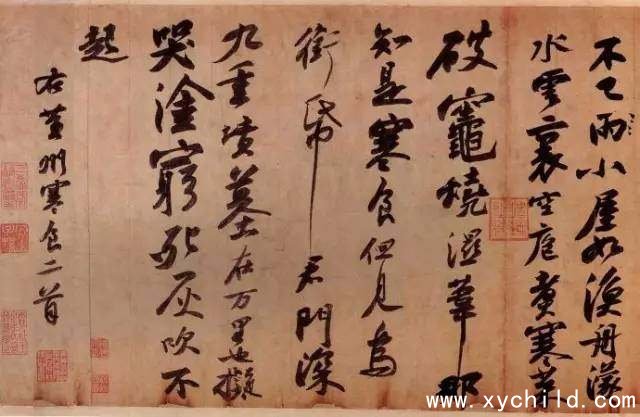 不已雨小屋如漁舟濛〻
水雲裏空庖煮寒菜
破竈燒濕葦那
知是寒食但見烏
銜帋君門深
九重墳墓在万里也擬
哭塗窮死灰吹不
起
右黃州寒食二首
www.xychild.com